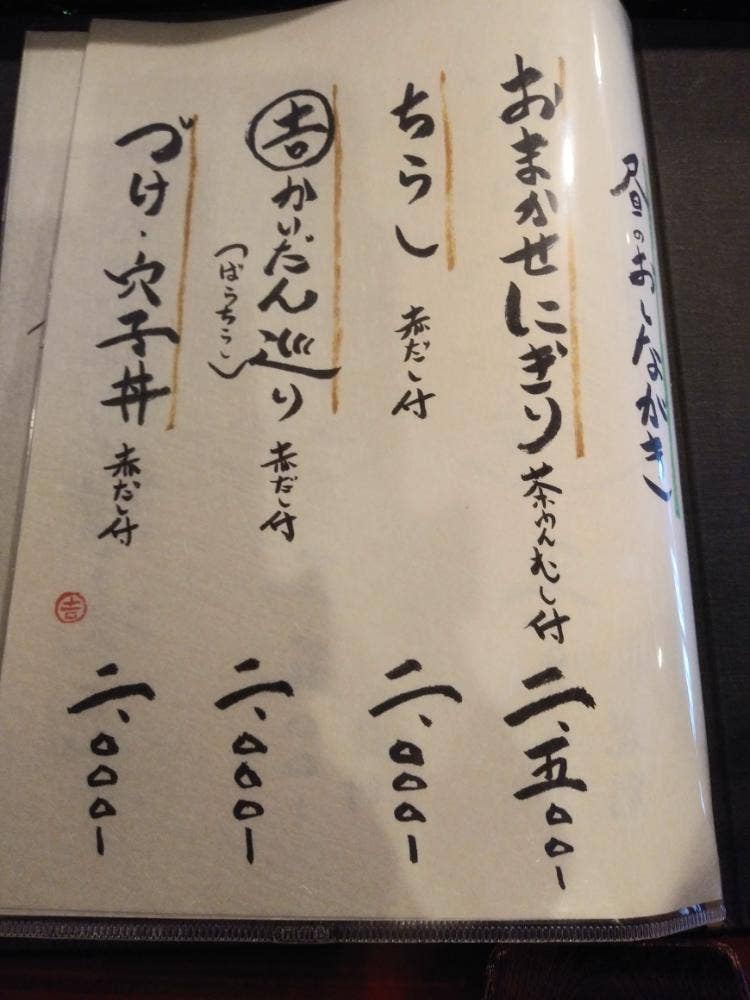 昼のおしながき
おまかせにぎり 茶わんむし付 二、五〇〇-
ちらし 赤だし付 二、〇〇〇-
㊉かいだん巡り 赤だし付 二、〇〇〇-
(ばらちらし)
づけ・穴子丼 赤だし付 二、〇〇〇-
吉